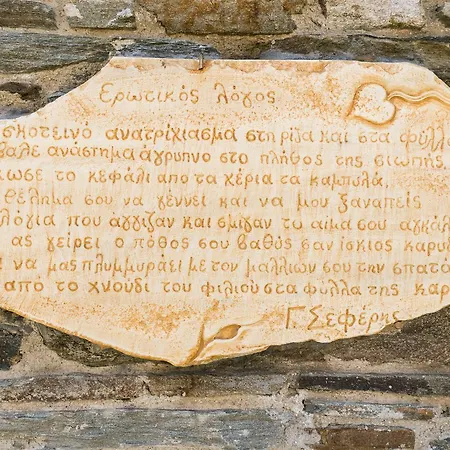 Ερωτικός λόγος
σκοτεινό ανατρίχιασμα στη ρίζα και στα φύλλ
βαλε ανάστημα άγρυπνο στο πλήθος της σιωπής
κωσε το κεφάλι απο τα χέρια τα καμπυλά.
θέλημα σου να γέννει και να μου ξαναπείς
λόγια που άγγιζαν και σμιγαν το αίμα σου αγκάλ
ας γείρει ο πόθος σου βαθύς σαν ίσκιος καρυ
ι να μας πλυμμυράει με τον μαλλιών σου την σπατά
από το χνούδι του φιλιού στα φύλλα της καρ
Γ Σεφέρης